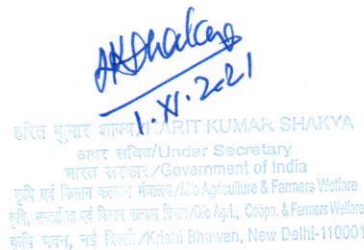 HKShakya
1.XI.2021
हरित कुमार शाक्य/HARIT KUMAR SHAKYA
अवर सचिव/Under Secretary
भारत सरकार/Government of India
कृषि एवं किसान कल्याण मंत्रालय/M/o Agriculture & Farmers Welfare
कृषि, सहकारिता एवं किसान कल्याण विभाग/D/o Agri., Coopn. & Farmers Welfare
कृषि भवन, नई दिल्ली/Krishi Bhawan, New Delhi-110001